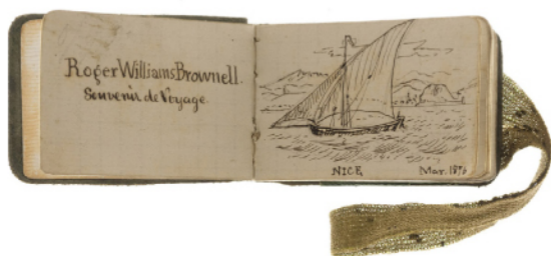 Roger Williams Brownell.
Souvenir de Voyage.
NICE Mar.